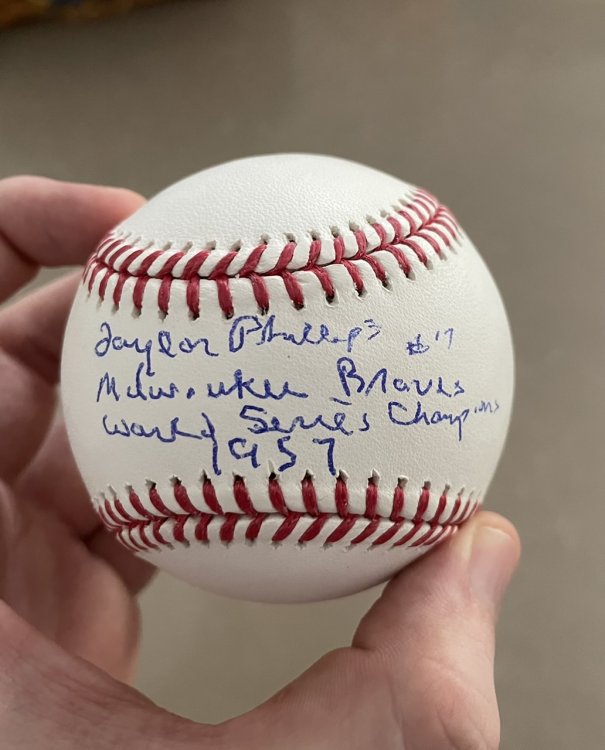 Taylor Phillips #17
Milwaukee Braves
World Series Champions
1957